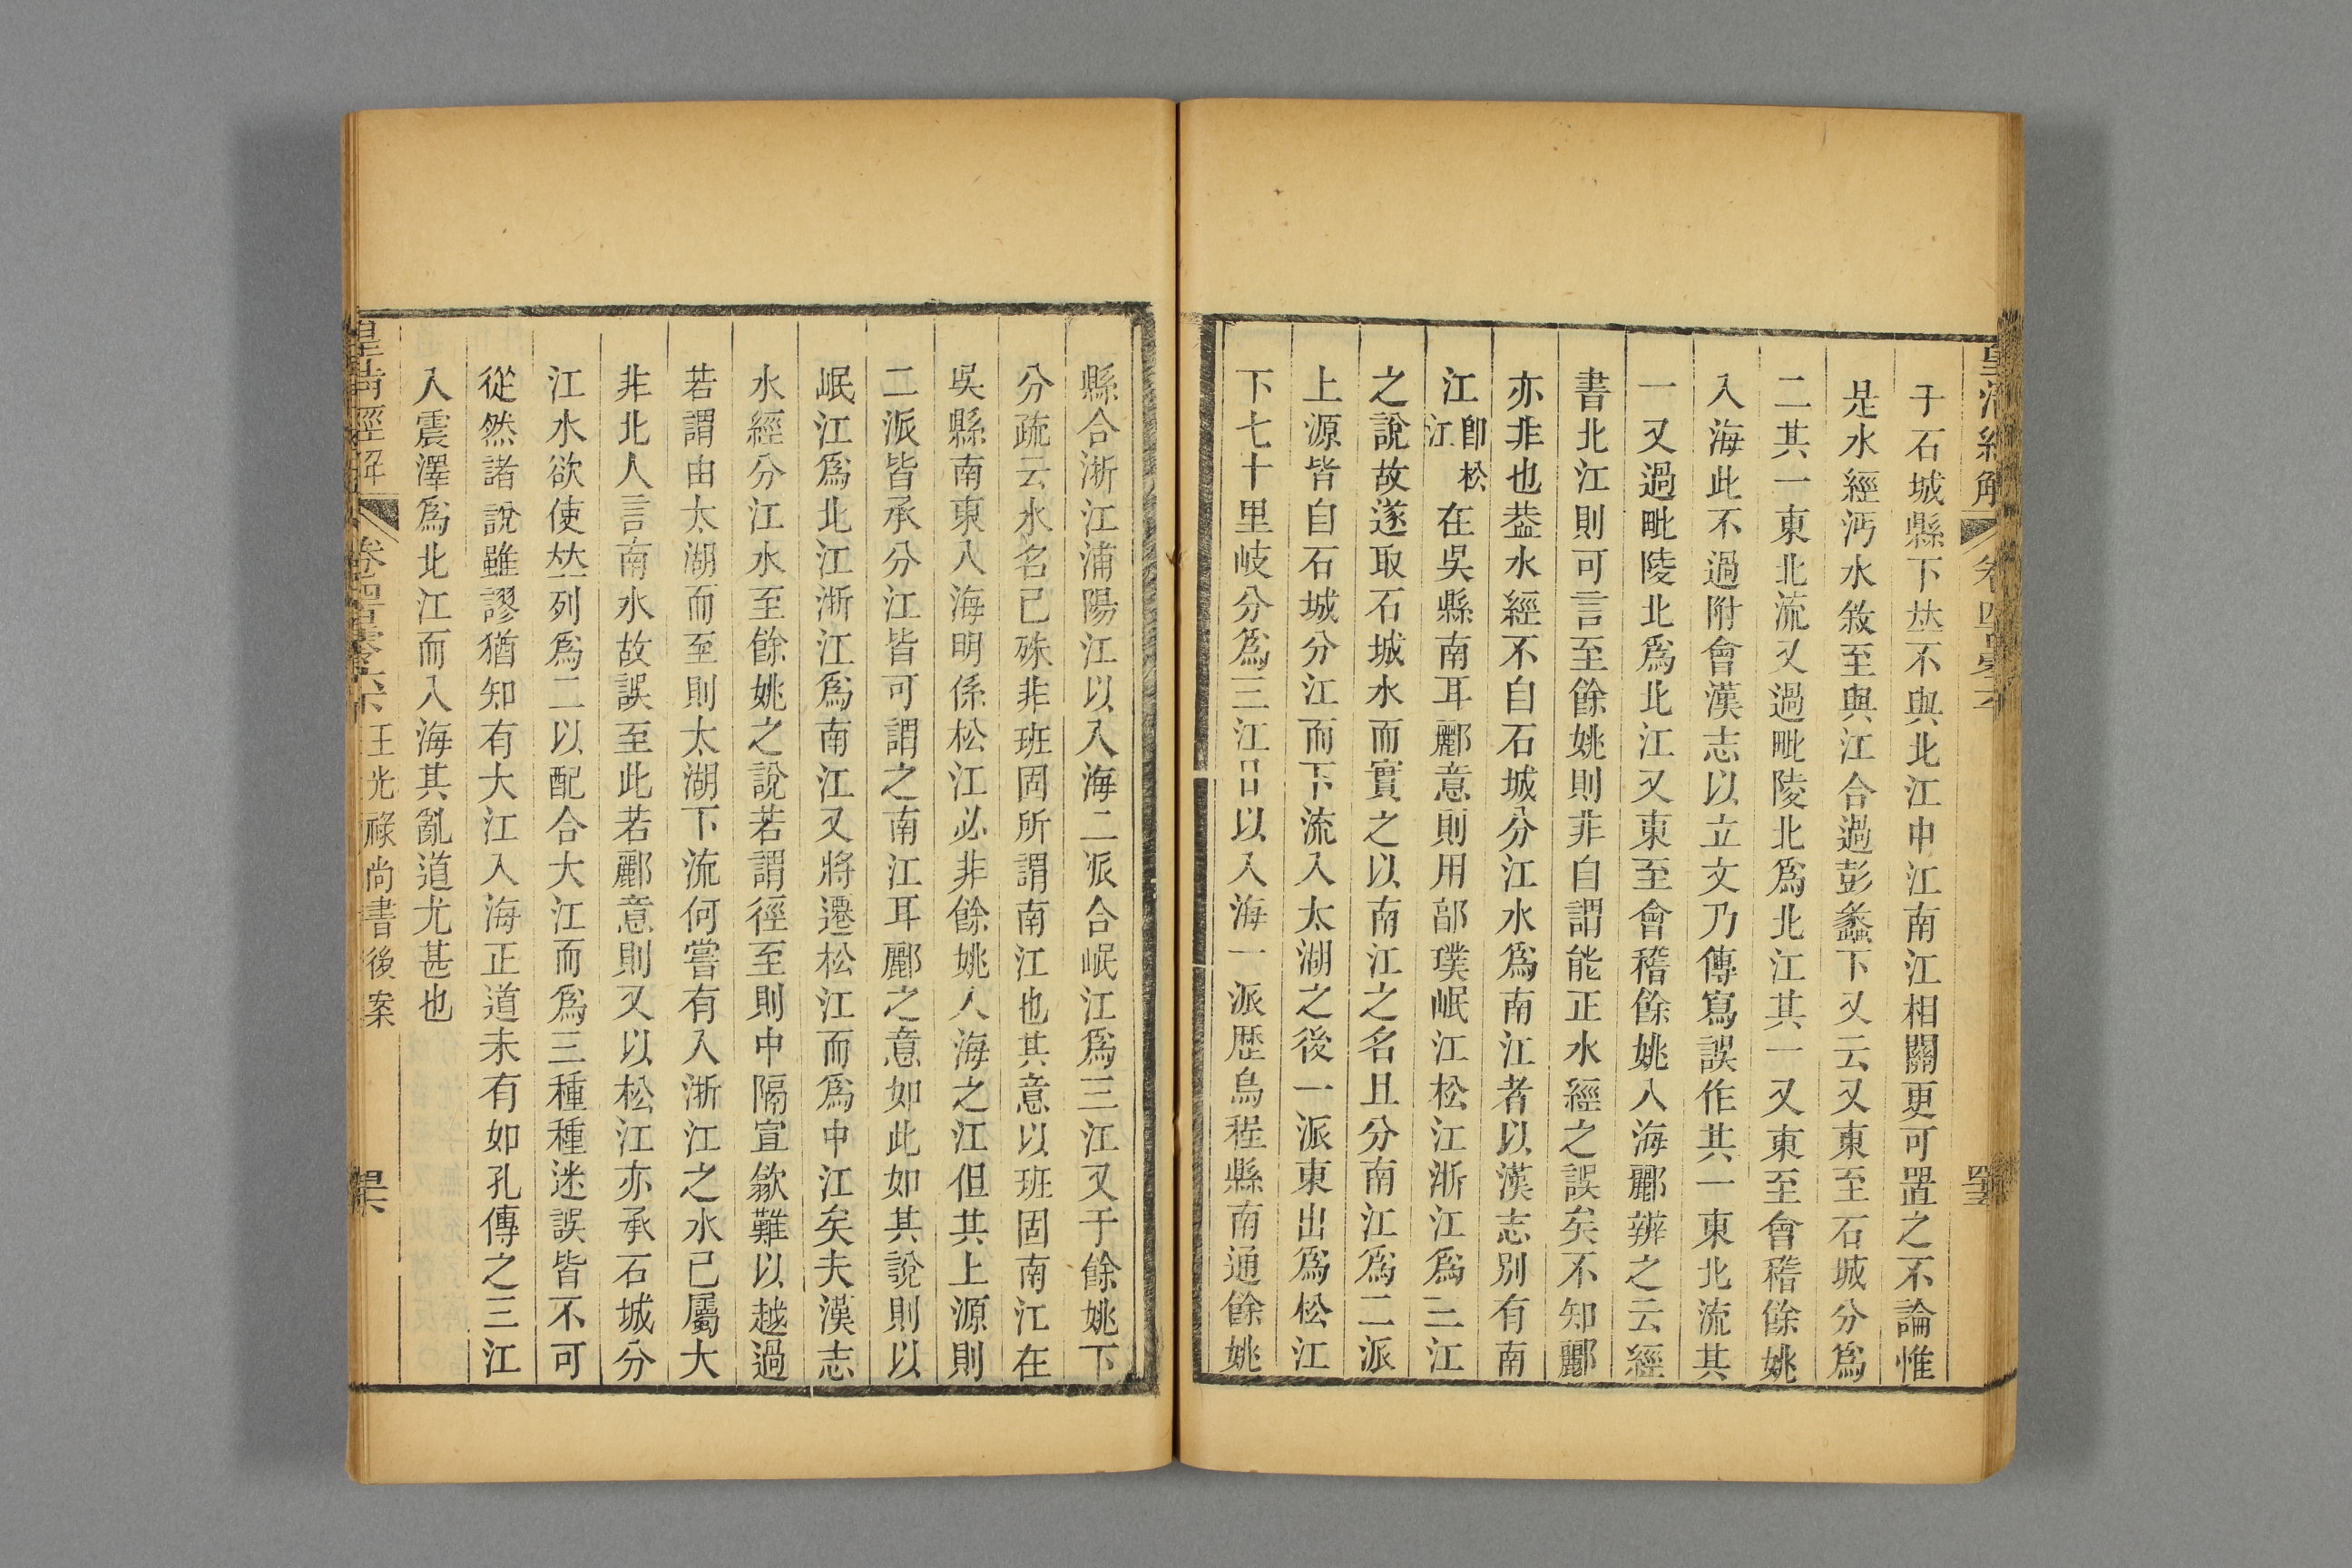 于石城縣下竝不與北江中江南江相關更可置之不論惟
是水經沔水敘至與江合過彭蠡下又云又東至石城分爲
二其一東北流又過毗陵北爲北江其一又東至會稽餘姚
入海此不過附會漢志以立文乃傳寫誤作其一東北流其
一又過毗陵北爲北江又東至會稽餘姚入海酈辨之云經
書北江則可言至餘姚則非自謂能正水經之誤矣不知酈
亦非也葢水經不自石城分江水爲南江者以漢志別有南
江卽松江在吳縣南耳酈意則用郭璞岷江松江浙江爲三江
之說故遂取石城水而實之以南江之名且分南江爲二派
上源皆自石城分江而下流入太湖之後一派東出爲松江
下七十里岐分爲三江口以入海一派歷烏程縣南通餘姚
縣合浙江浦陽江以入海二派合岷江爲三江又于餘姚下
分疏云水名已殊非班固所謂南江也其意以班固南江在
吳縣南東入海明係松江必非餘姚入海之江但其上源則
二派皆承分江皆可謂之南江耳酈之意如此如其說則以
岷江爲北江浙江爲南江又將遷松江而爲中江矣夫漢志
水經分江水至餘姚之說若謂徑至則中隔宣歙難以越過
若謂由太湖而至則太湖下流何嘗有入浙江之水已屬大
非北人言南水故誤至此若酈意則又以松江亦承石城分
江水欲使竝列爲二以配合大江而爲三種種迷誤皆不可
從然諸說雖謬猶知有大江入海正道未有如孔傳之三江
入震澤爲北江而入海其亂道尤甚也
皇清經解
王光祿尚書後案